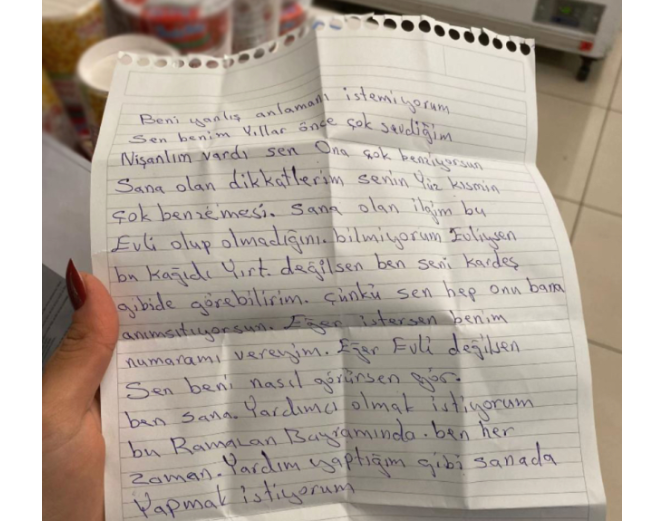 Beni yanlış anlamanı istemiyorum
Sen benim Yıllar önce çok sevdiğim
Nişanlım vardı sen Ona çok benziyorsun
Sana olan dikkatlerim senin Yüz kısmın
çok benzemesi. Sana olan ilgim bu
Evli olup olmadığını. bilmiyorum Evliysen
bu kağıdı Yırt. değilsen ben seni kardeş
gibide görebilirim. çünkü sen hep onu bana
anımsıtıyorsun. Eğer istersen benim
numaramı vereyim. Eğer Evli değilsen
Sen beni nasıl görürsen gör.
ben sana. Yardımcı olmak istiyorum
bu Ramazan Bayramında. ben her
zaman. Yardım yaptığım gibi sanada
Yapmak istiyorum